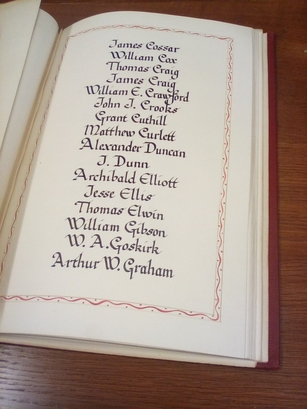 James Cossar
William Cox
Thomas Craig
James Craig
William E. Crawford
John J. Crooks
Grant Cuthill
Matthew Curlett
Alexander Duncan
J. Dunn
Archibald Elliott
Jesse Ellis
Thomas Elwin
William Gibson
W. A. Goskirk
Arthur W. Graham